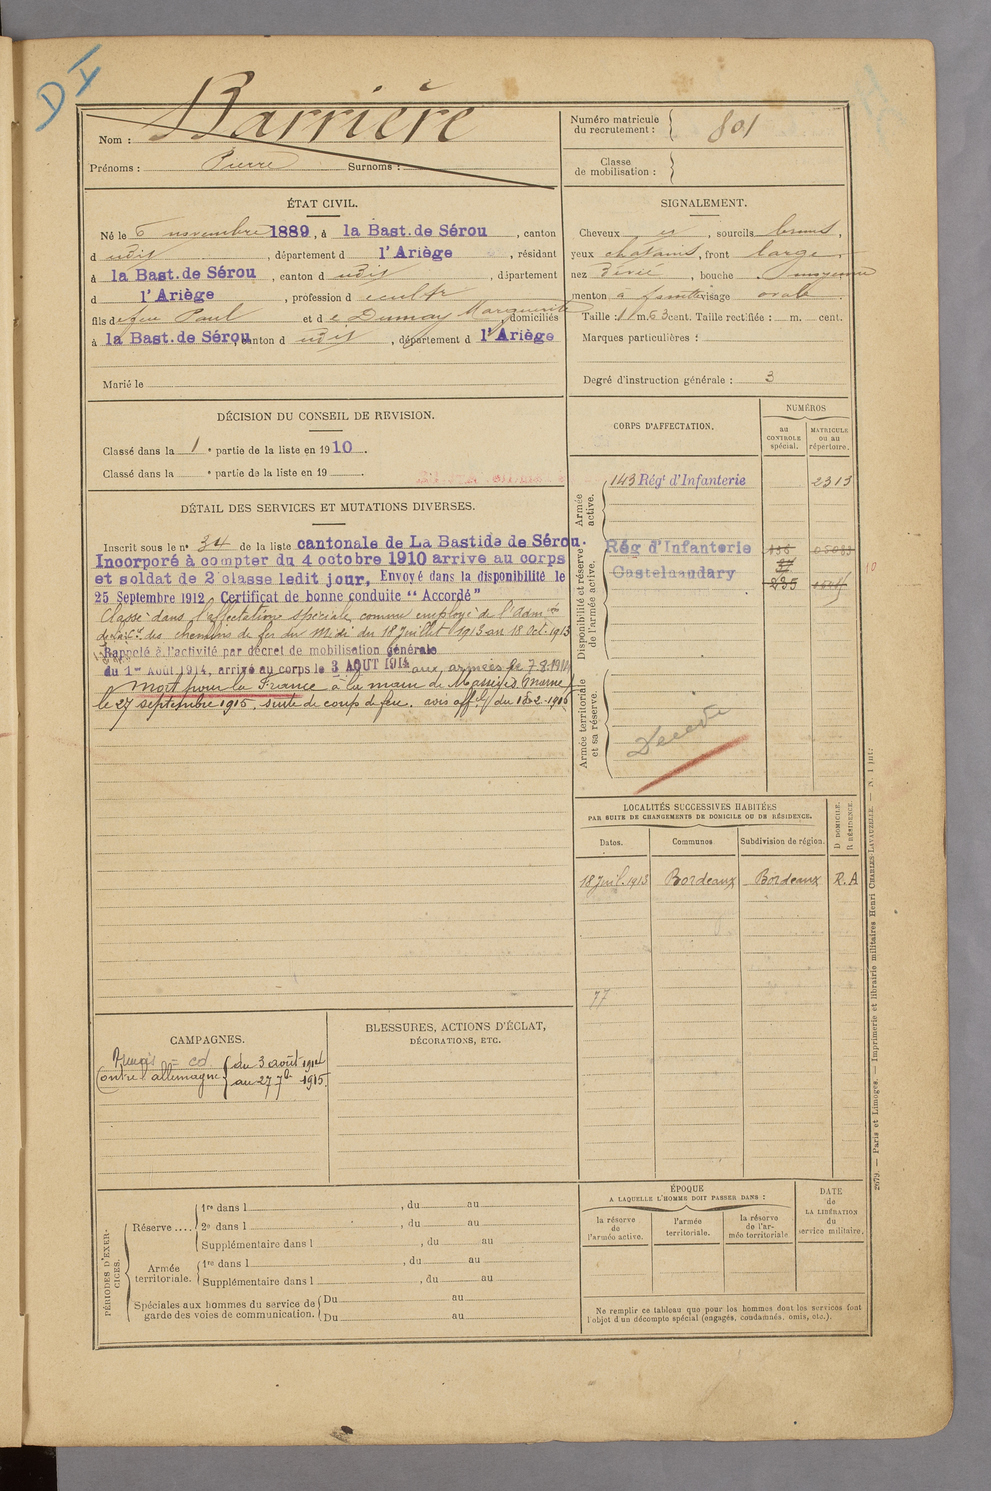 D I
Nom : Barrière
Prénoms : Pierre Surnoms :
Numéro matricule du recrutement : 801
Classe de mobilisation :
ÉTAT CIVIL.
Né le 6 novembre 1889, à la Bast. de Sérou, canton
d udit, département d l'Ariège, résidant
à la Bast. de Sérou, canton d udit, département
d l'Ariège, profession d cultr
fils de feu Paul et d e Dumay Marguerite, domiciliés
à la Bast. de Sérou, canton d udit, département d l'Ariège
Marié le
SIGNALEMENT.
Cheveux et, sourcils bruns,
yeux chatains, front large,
nez dévié, bouche moyenne
menton à fossette visage ovale
Taille : 1 m. 63 cent. Taille rectifiée : m. cent.
Marques particulières :
Degré d'instruction générale : 3
DÉCISION DU CONSEIL DE REVISION.
Classé dans la 1e partie de la liste en 1910.
Classé dans la e partie de la liste en 19 .
DÉTAIL DES SERVICES ET MUTATIONS DIVERSES.
Inscrit sous le no 34 de la liste cantonale de La Bastide de Sérou.
Incorporé à compter du 4 octobre 1910 arrive au corps
et soldat de 2 classe ledit jour, Envoyé dans la disponibilité le
25 Septembre 1912, Certificat de bonne conduite “ Accordé ”
Classé dans l'affectation spéciale comme employé de l'Admon
de la Cie des chemins de fer du Midi du 18 Juillet 1913 au 18 Oct. 1913
Rappelé à l'activité par décret de mobilisation générale
du 1er Août 1914, arrivé au corps le 3 AOUT 1914 aux armées le 7.8.1914
Mort pour la France à la main de Massiges Marne
le 27 septembre 1915, suite de coup de feu. avis offel du 15.2.1916
CORPS D'AFFECTATION.
NUMÉROS
au CONTROLE spécial.
MATRICULE ou au répertoire.
Armée active.
143 Rég t d'Infanterie 2313
Disponibilité et réserve de l'armée active.
Rég d'Infanterie
Castelnaudary
Armée territoriale et sa réserve.
Décédé
LOCALITÉS SUCCESSIVES HABITÉES
PAR SUITE DE CHANGEMENTS DE DOMICILE OU DE RÉSIDENCE.
Dates. Communes Subdivision de région. D. DOMICILE. R RÉSIDENCE.
18 Juil. 1913 Bordeaux Bordeaux R. A
77
CAMPAGNES.
contre l'allemagne { du 3 août 1914
au 27 7bre 1915.
BLESSURES, ACTIONS D'ÉCLAT,
DÉCORATIONS, ETC.
PÉRIODES D'EXERCICES.
Réserve .... 1re dans l , du au
2e dans l , du au
Supplémentaire dans l , du au
Armée territoriale. 1re dans l , du au
Supplémentaire dans l , du au
Spéciales aux hommes du service de garde des voies de communication. Du au
Du au
ÉPOQUE
A LAQUELLE L'HOMME DOIT PASSER DANS :
la réserve de l'armée active.
l'armée territoriale.
la réserve de l'armée territoriale
DATE de LA LIBÉRATION du service militaire.
Ne remplir ce tableau que pour les hommes dont les services font
l'objet d'un décompte spécial (engagés, condamnés, omis, etc.).
2679. — Paris et Limoges. — Imprimerie et librairie militaires Henri CHARLES-LAVAUZELLE. — N. 1